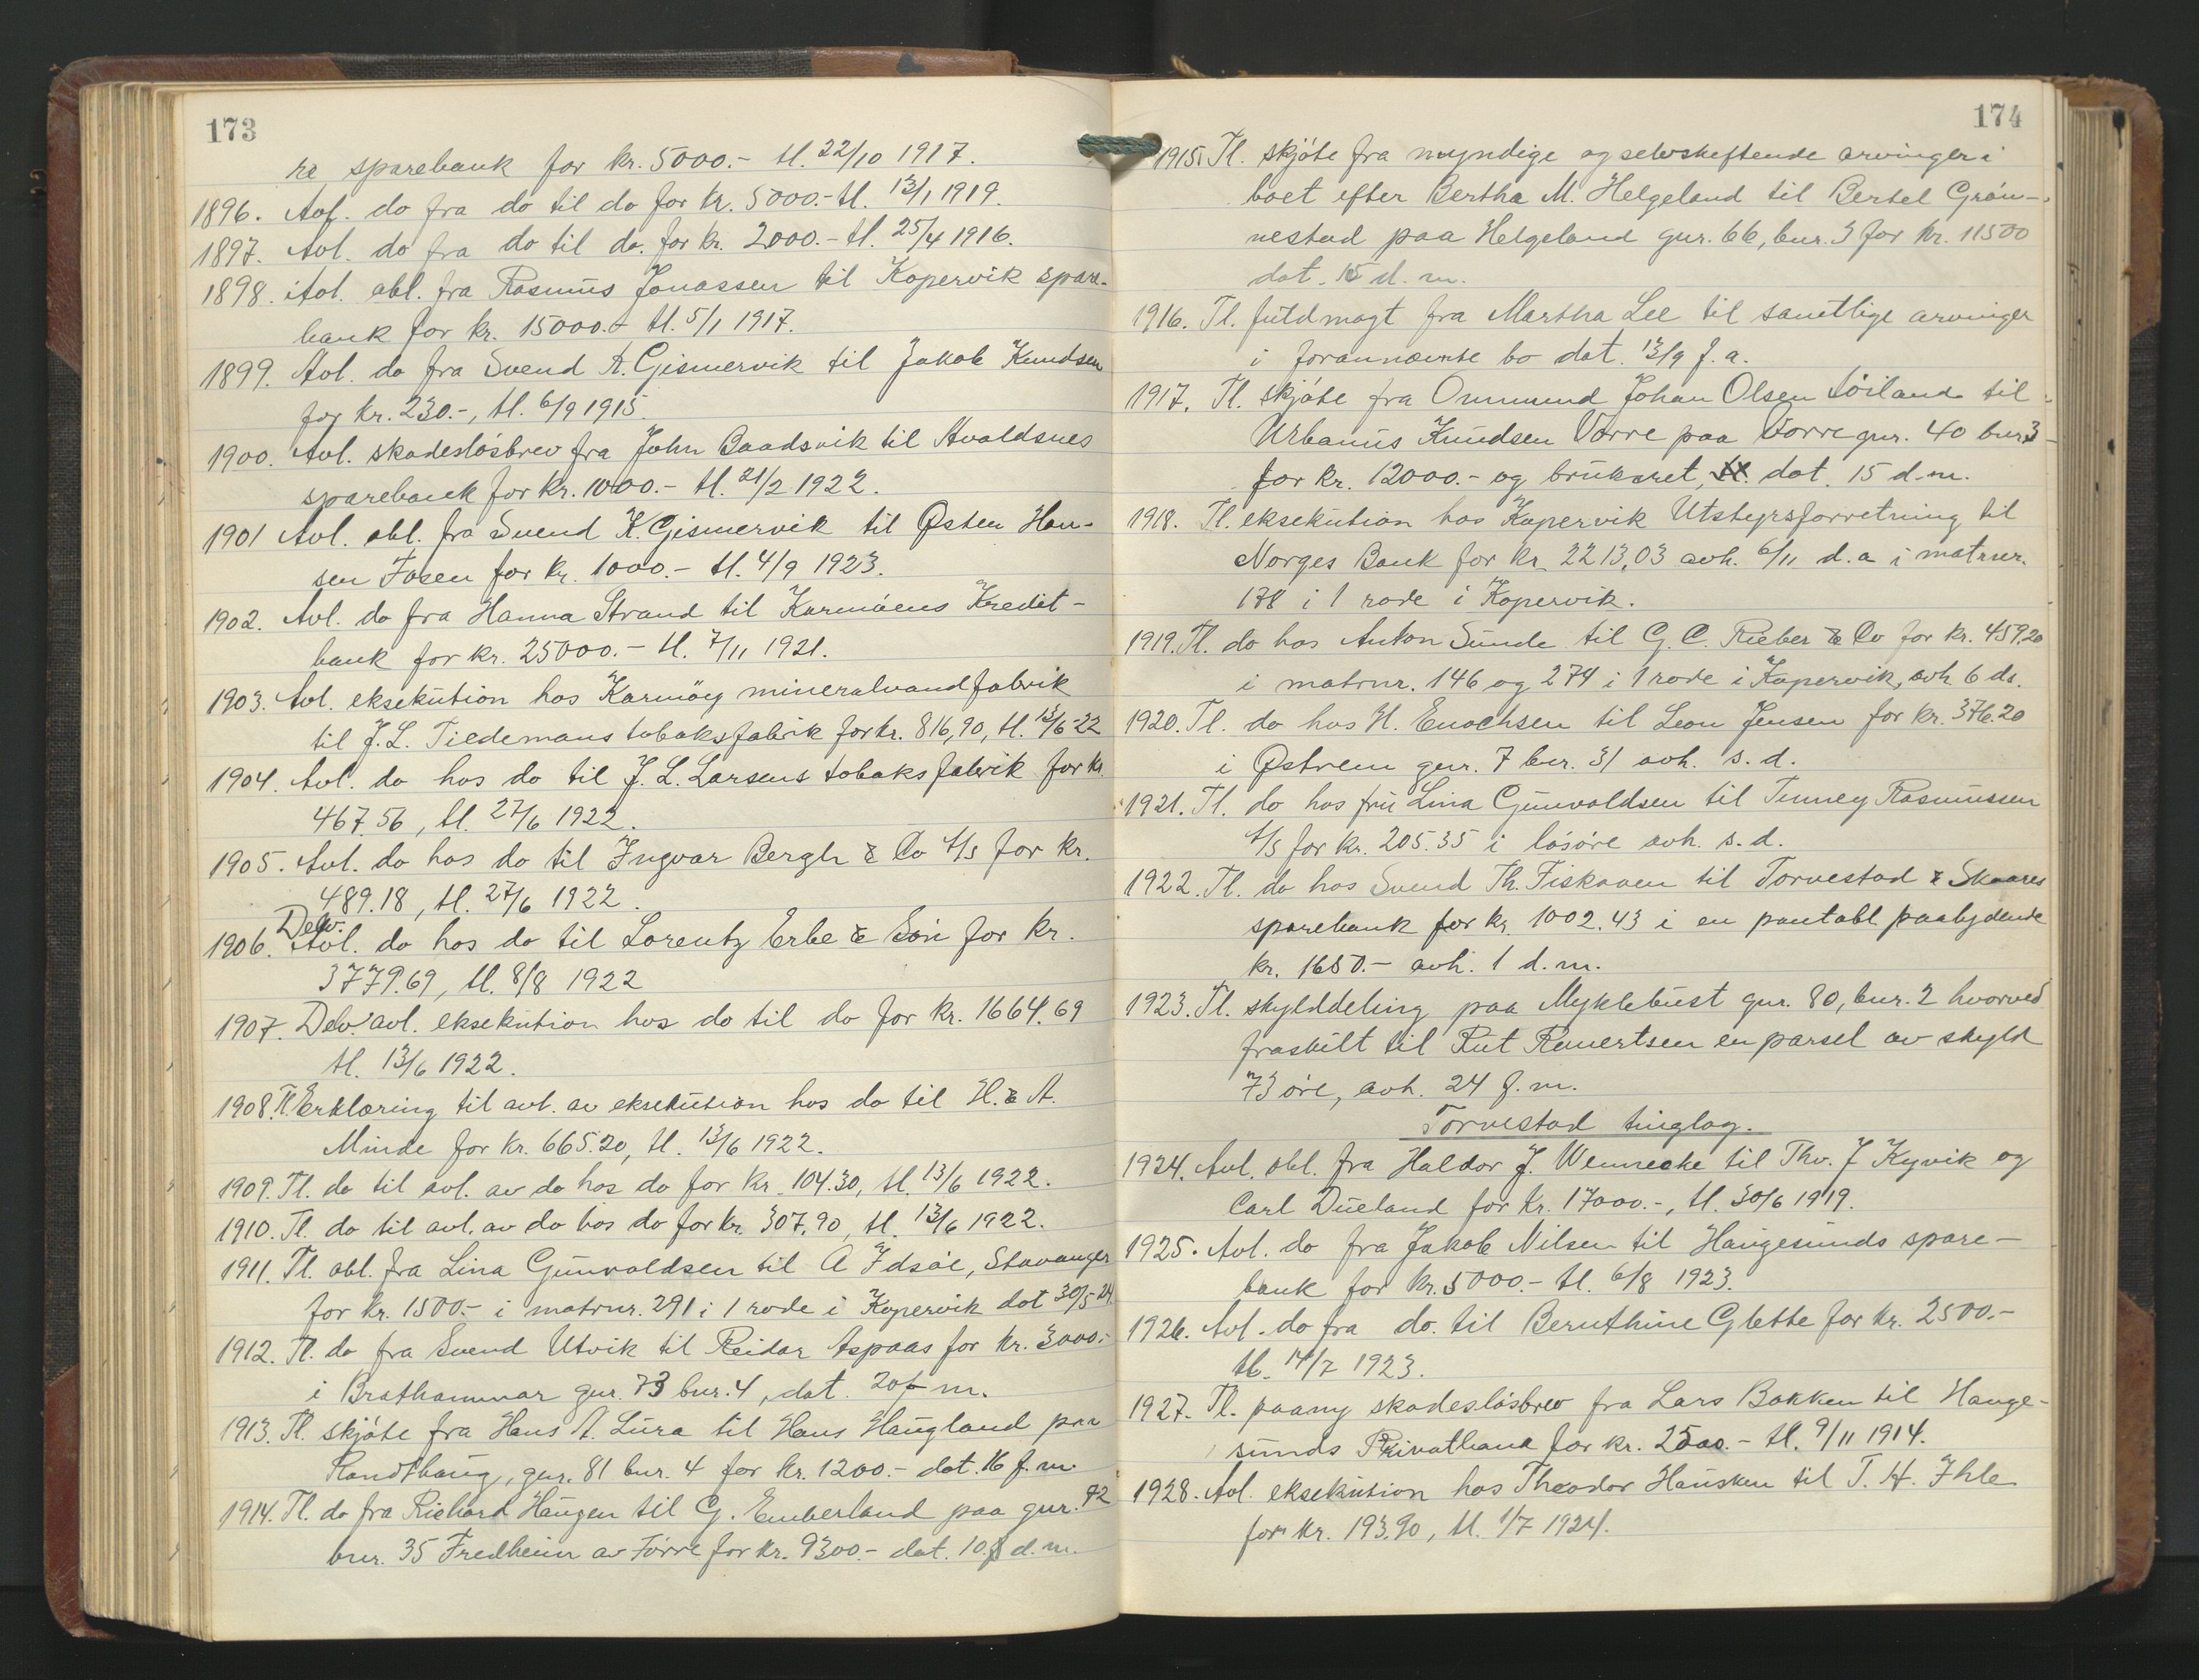 173
re sparebank for kr. 5000.- tl. 22/10 1917.
1896. Avl. do fra do til do for kr. 5000.- tl. 13/1 1919.
1897. Avl. do fra do til do. for kr. 2000.- tl. 25/4 1916.
1898. Avl. obl. fra Rasmus Jonassen til Kopervik spare-
bank for kr. 15000.- tl. 5/1 1917.
1899. Avl. do fra Svend A. Gismervik til Jakob Knudsen
for kr. 230.-, tl. 6/9 1915.
1900. Avl. skadesløsbrev fra John Baadsvik til Avaldsnes
sparebank for kr. 1000.- tl. 21/2 1922.
1901 Avl. obl. fra Svend K. Gismervik til Østen Han-
sen Fosen for kr. 1000.- tl. 4/9 1923.
1902. Avl. do fra Hanna Strand til Karmøens Kredit-
bank for kr. 25000.- tl. 7/11 1921.
1903. Avl. eksekution hos Karmöy mineralvandfabrik
til J. L. Tiedemans tobaksfabrik for kr. 816,90, tl. 13/6-22
1904. Avl. do hos do til J. L. Larsens tobaksfabrik for kr.
467.56, tl. 27/6 1922.
1905. Avl. do hos do til Ingvar Bergh & Co A/S for kr.
489.18, tl. 27/6 1922.
1906. Delv. Avl. do hos do til Lorentz Erbe & Søn for kr.
3779.69, tl. 8/8 1922
1907. Delv. avl. eksekution hos do til do for kr. 1664.69
tl. 13/6 1922.
1908. Tl. Erklæring til avl. av eksekution hos do til H. & A.
Minde for kr. 665.20, tl. 13/6 1922.
1909. Tl. do til avl. av do hos do for kr. 104.30, tl. 13/6 1922.
1910. Tl. do til avl. av do hos do for kr. 307.90, tl. 13/6 1922.
1911. Tl. obl. fra Lina Gunvaldsen til A Idsøe, Stavanger
for kr. 1500.- i matrnr. 291 i 1 rode i Kopervik dat 30/5-24.
1912. Tl. do fra Svend Utvik til Reidar Aspaas for kr. 3000.-
i Brathammar gnr. 73 bnr. 4, dat. 20 f. m.
1913. Tl. skjøte fra Hans A. Lura til Hans Haugland paa
Randthaug, gnr. 81 bnr. 4 for kr. 1200.- dat. 16 f. m.
1914. Tl. do fra Richard Haugen til G. Emberland paa gnr. 42
bnr. 35 Fredheim av Førre for kr. 9300.- dat. 10 d. m.
174
1915. Tl. skjøte fra myndige og selvskiftende arvinger i
boet efter Bertha M. Helgeland til Bertel Grøn-
nestad paa Helgeland gnr. 66, bnr. 3 for kr. 11500
dat. 15 d. m.
1916. Tl. fuldmagt fra Martha Lee til samtlige arvinger
i forannævnte bo dat. 13/9 f. a.
1917. Tl. skjøte fra Ommund Johan Olsen Løiland til
Urbanus Knudsen Vorre paa Vorre gnr. 40 bnr. 3
for kr. 12000.- og brukaret, dat. 15 d. m.
1918. Tl. eksekution hos Kopervik Utstyrsforretning til
Norges Bank for kr. 2213,03 avh. 6/11 d. a i matrnr.
178 i 1 rode i Kopervik.
1919. Tl. do hos Anton Sunde til G. C. Rieber & Co for kr. 459.20
i matrnr. 146 og 274 i 1 rode i Kopervik, avh. 6 ds.
1920. Tl. do hos H. Enochsen til Leon Jensen for kr. 376.20
i Østrem gnr. 7 bnr. 31 avh. s. d.
1921. Tl. do hos fru Lina Gunvaldsen til Tenney Rasmussen
A/S for kr. 205.35 i løsøre avh. s. d.
1922. Tl. do hos Svend Th. Fiskaaen til Torvestad & Skaares
sparebank for kr. 1002.43 i en pantobl. paalydende
kr. 1650.- avh. 1 d. m.
1923. Tl. skylddeling paa Myklebust gnr. 80, bnr. 2 hvorved
fraskilt til Knt Rmertsen en parsel av skyld
73 øre, avh. 24 f. m.
Torvestad tinglag.
1924. Avl. obl. fra Haldor J. Wennecke til Thv. J Kyvik og
Carl Dueland for kr. 17000.-, tl. 30/6 1919.
1925. Avl. do fra Jakob Nilsen til Haugesunds spare-
bank for kr. 5000.- tl. 6/8 1923.
1926. Avl. do fra do. til Bernthine Glette for kr. 2500.-
tl. 14/7 1923.
1927. Tl. paany skadesløsbrev fra Lars Bakken til Hauge-
sunds Privatbank for kr. 2500.- tl. 9/11 1914.
1928. Avl. eksekution hos Theodor Hausken til T. H. Ihle
for kr. 193.90, tl. 1/7 1924.